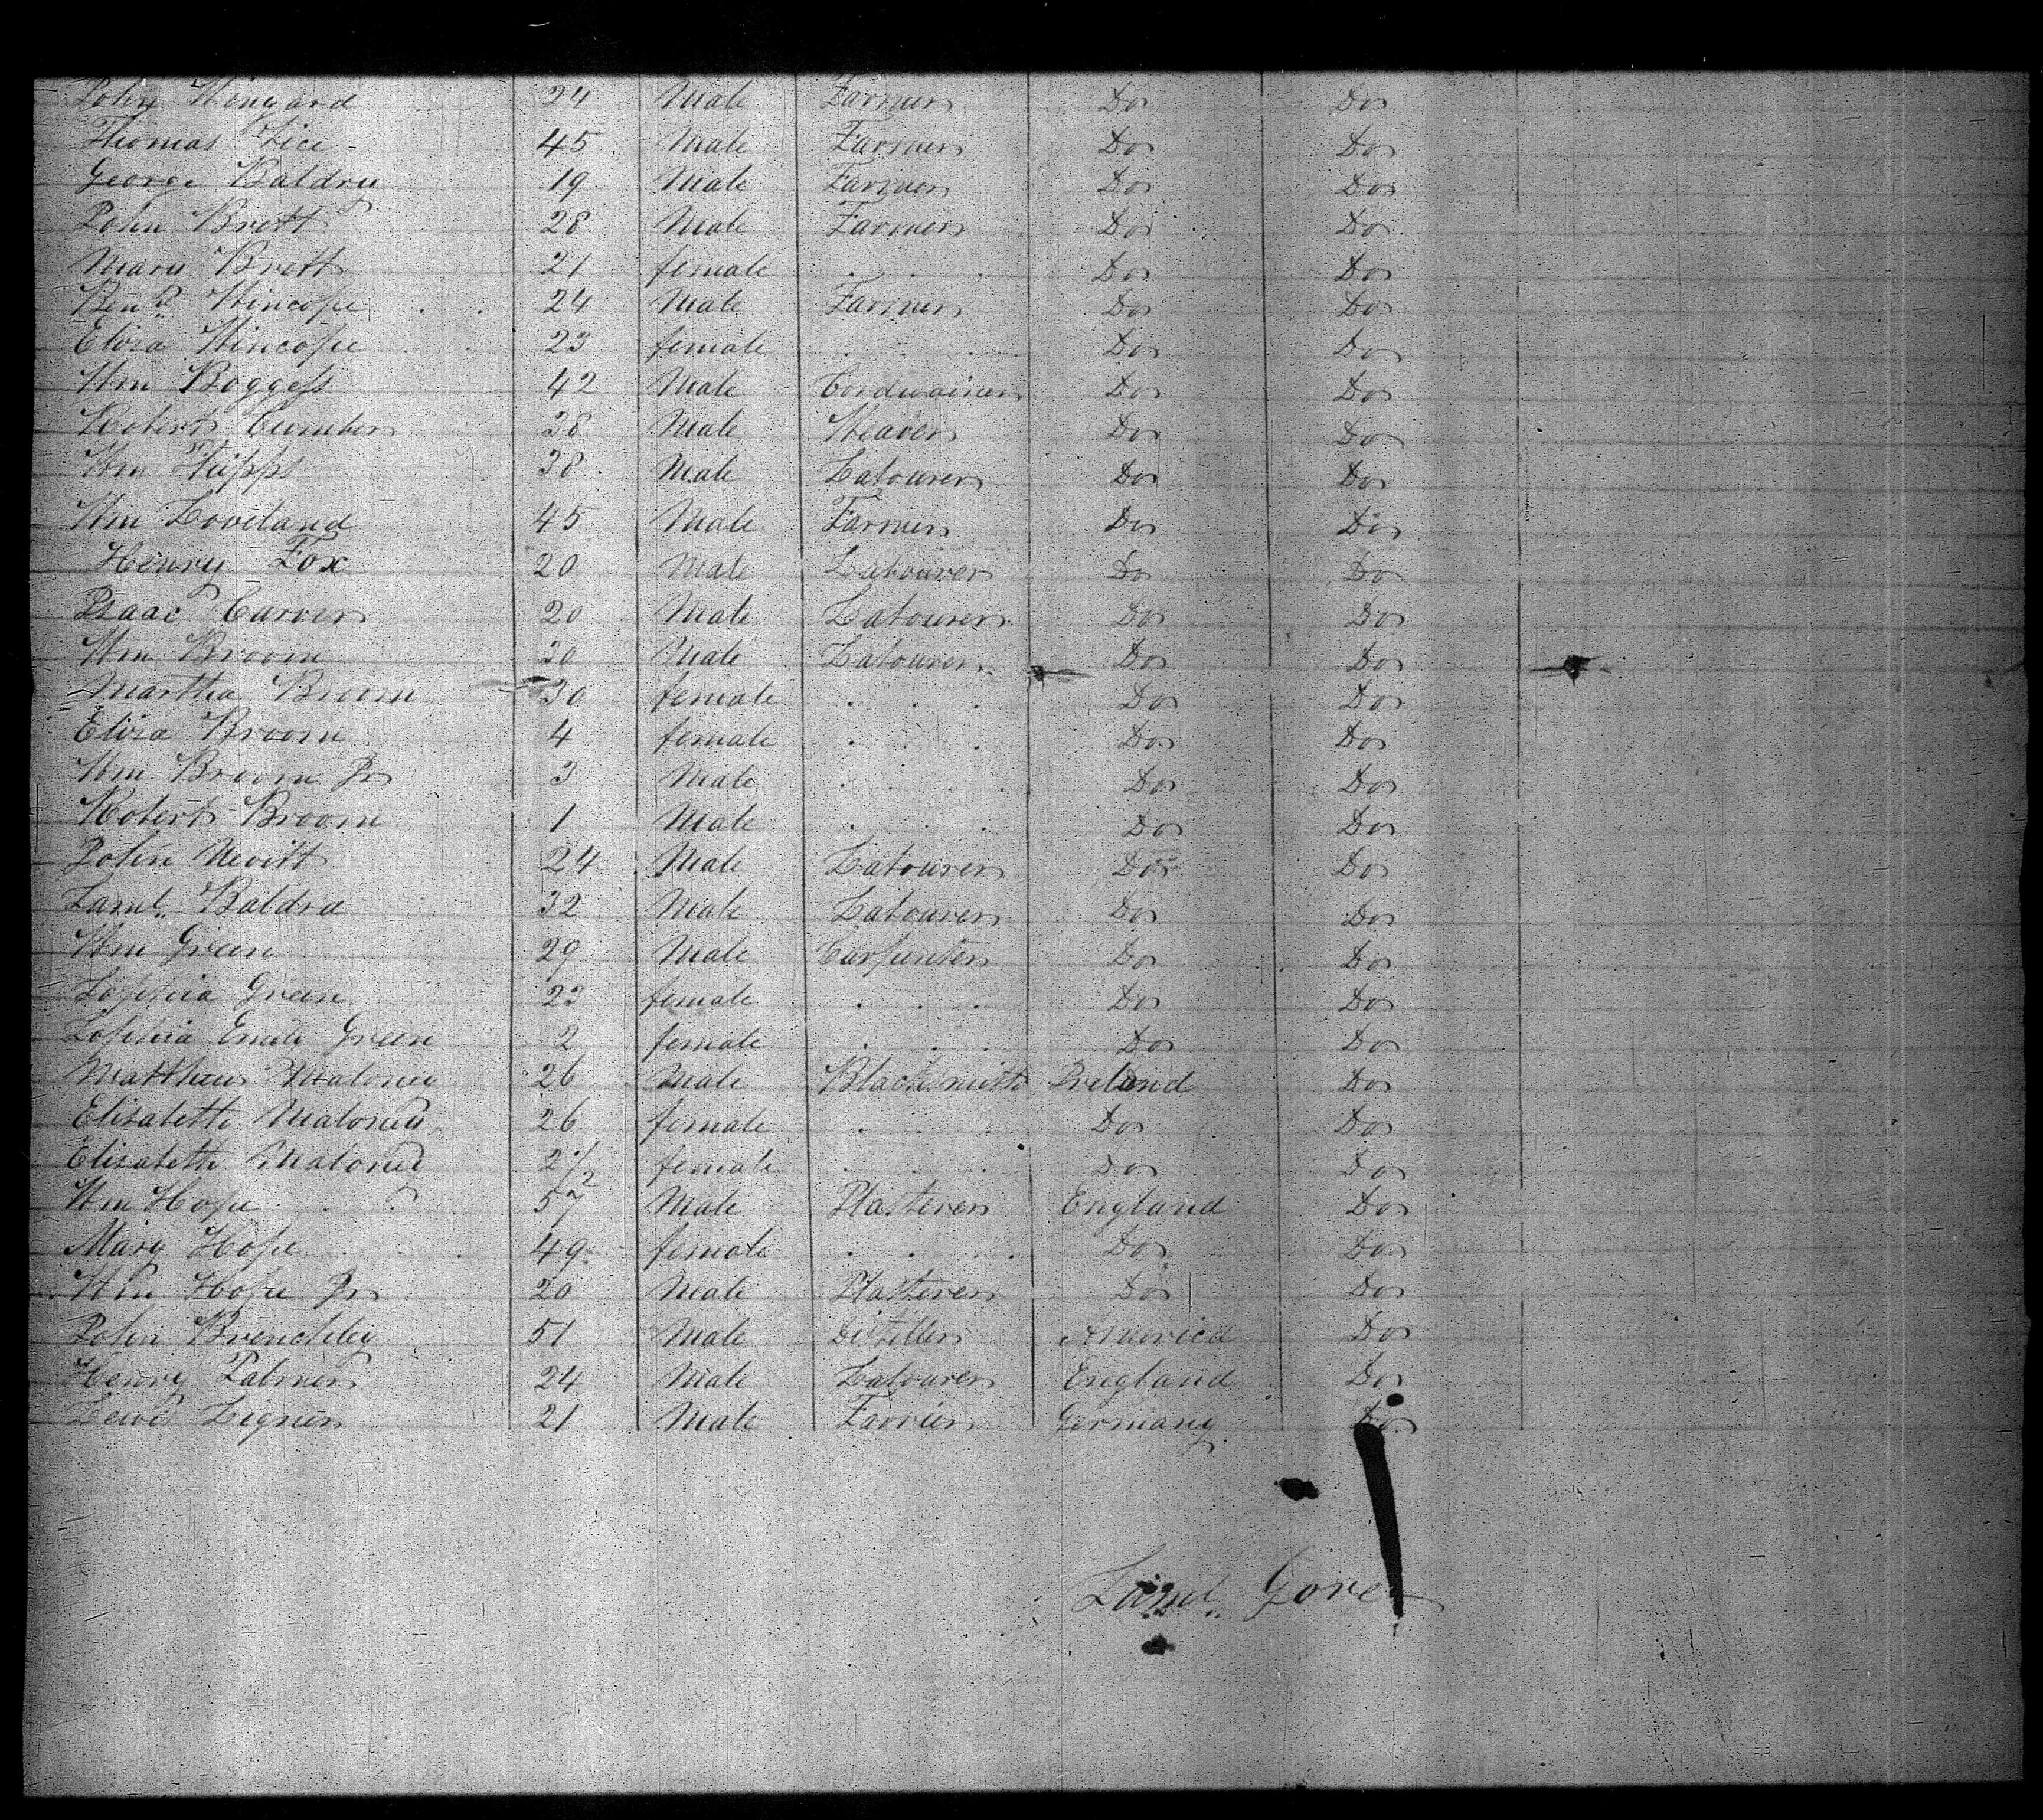 John Wingard 24 Male Farmer Do Do
Thomas Lice 45 Male Farmer Do Do
George Baldry 19 Male Farmer Do Do
John Brett 28 Male Farmer Do Do
Mary Brett 21 female . . . Do Do
Benj Hincope . . 24 Male Farmer Do Do
Eliza Hincope . . 23 female . . . Do Do
Wm Boggess 42 Male Cordwainer Do Do
Robert Cumber 38 Male Weaver Do Do
Wm 38 Male Labourer Do Do
Wm Loveland 45 Male Farmer Do Do
Henry Fox 20 Male Labourer Do Do
Isaac Carver 20 Male Labourer Do Do
Wm Broom 30 Male Labourer Do Do
Martha Broom 30 female . . . Do Do
Eliza Broom 4 female . . . Do Do
Wm Broom Jr 3 Male . . . Do Do
Robert Broom 1 Male . . . Do Do
John Nevitt 24 Male Labourer Do Do
Saml. Baldra 32 Male Labourer Do Do
Wm Green 29 Male Carpenter Do Do
Sophia Green 23 female . . . Do Do
Sophia Green 2 female . . . Do Do
Matthew Maloney 26 Male Blacksmith Ireland Do
Elizabeth Maloney 26 female . . . Do Do
Elizabeth Maloney 2 1/2 female . . . Do Do
Wm Hope . . 57 Male Plasterer England Do
Mary Hope . . . 49 female . . . Do Do
Wm Hope Jr 20 Male Plasterer Do Do
John Brenchley 51 Male Distiller America Do
Henry Palmer 24 Male Labourer England Do
Lewis Ligner 21 Male Farrier Germany Do
Saml. Gore